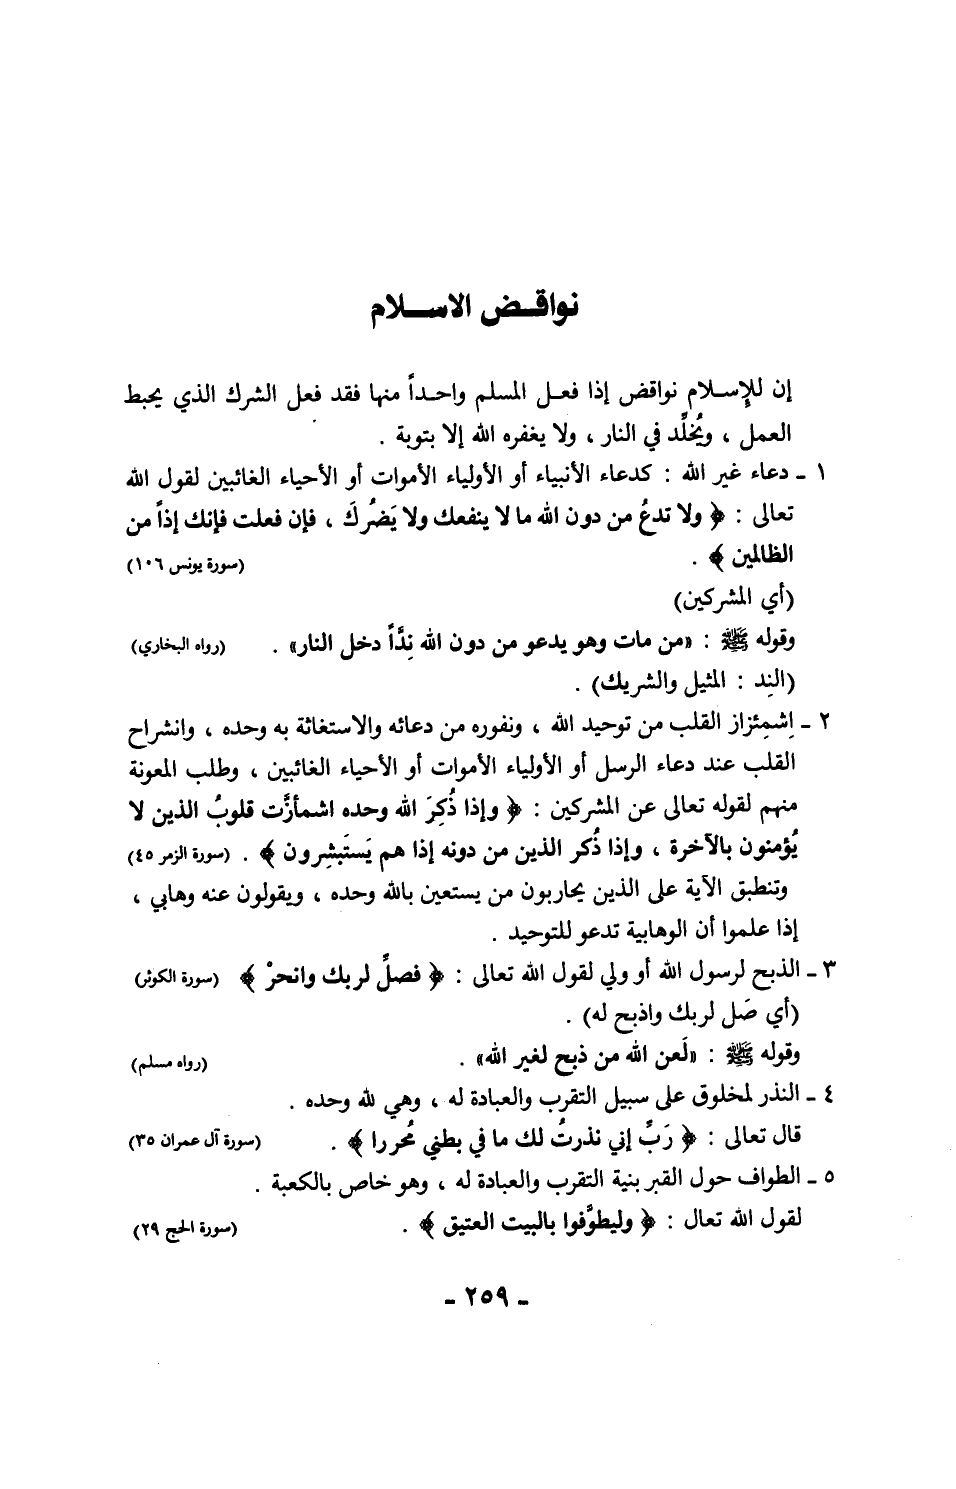 نواقـض الاسـلام
إن للإسـلام نواقض إذا فعـل المسلم واحـداً منها فقد فعل الشرك الذي يحبط
العمل ، ويُخلَّد في النار ، ولا يغفره الله إلا بتوبة .
١ ـ دعاء غير الله : كدعاء الأنبياء أو الأولياء الأموات أو الأحياء الغائبين لقول الله
تعالى : ﴿ ولا تدعُ من دون الله ما لا ينفعك ولا يَضُركَ ، فإن فعلت فإنك إذاً من
الظالمين ﴾ . (سورة يونس ١٠٦)
(أي المشركين)
وقوله ﷺ : «من مات وهو يدعو من دون الله نِدَّاً دخل النار» . (رواه البخاري)
(النِد : المثيل والشريك) .
٢ ـ اِشمِئزاز القلب من توحيد الله ، ونفوره من دعائه والاستغاثة به وحده ، وانشراح
القلب عند دعاء الرسل أو الأولياء الأموات أو الأحياء الغائبين ، وطلب المعونة
منهم لقوله تعالى عن المشركين : ﴿ وإذا ذُكِرَ الله وحده اشمأزَّت قلوبُ الذين لا
يُؤمنون بالآخرة ، وإذا ذُكر الذين من دونه إذا هم يَستَبشِرون ﴾ . (سورة الزمر ٤٥)
وتنطبق الآية على الذين يحاربون من يستعين بالله وحده ، ويقولون عنه وهابي ،
إذا علموا أن الوهابية تدعو للتوحيد .
٣ ـ الذبح لرسول الله أو ولي لقول الله تعالى : ﴿ فصلِّ لربك وانحرْ ﴾ (سورة الكوثر)
(أي صَل لربك واذبح له) .
وقوله ﷺ : «لَعن الله من ذبح لغير الله» . (رواه مسلم)
٤ ـ النذر لمخلوق على سبيل التقرب والعبادة له ، وهي لله وحده .
قال تعالى : ﴿ رَبِّ إني نذرتُ لك ما في بطني مُحررا ﴾ . (سورة آل عمران ٣٥)
٥ ـ الطواف حول القبر بنية التقرب والعبادة له ، وهو خاص بالكعبة .
لقول الله تعال : ﴿ وليطوَّفوا بالبيت العتيق ﴾ . (سورة الحج ٢٩)
ـ ٢٥٩ ـ